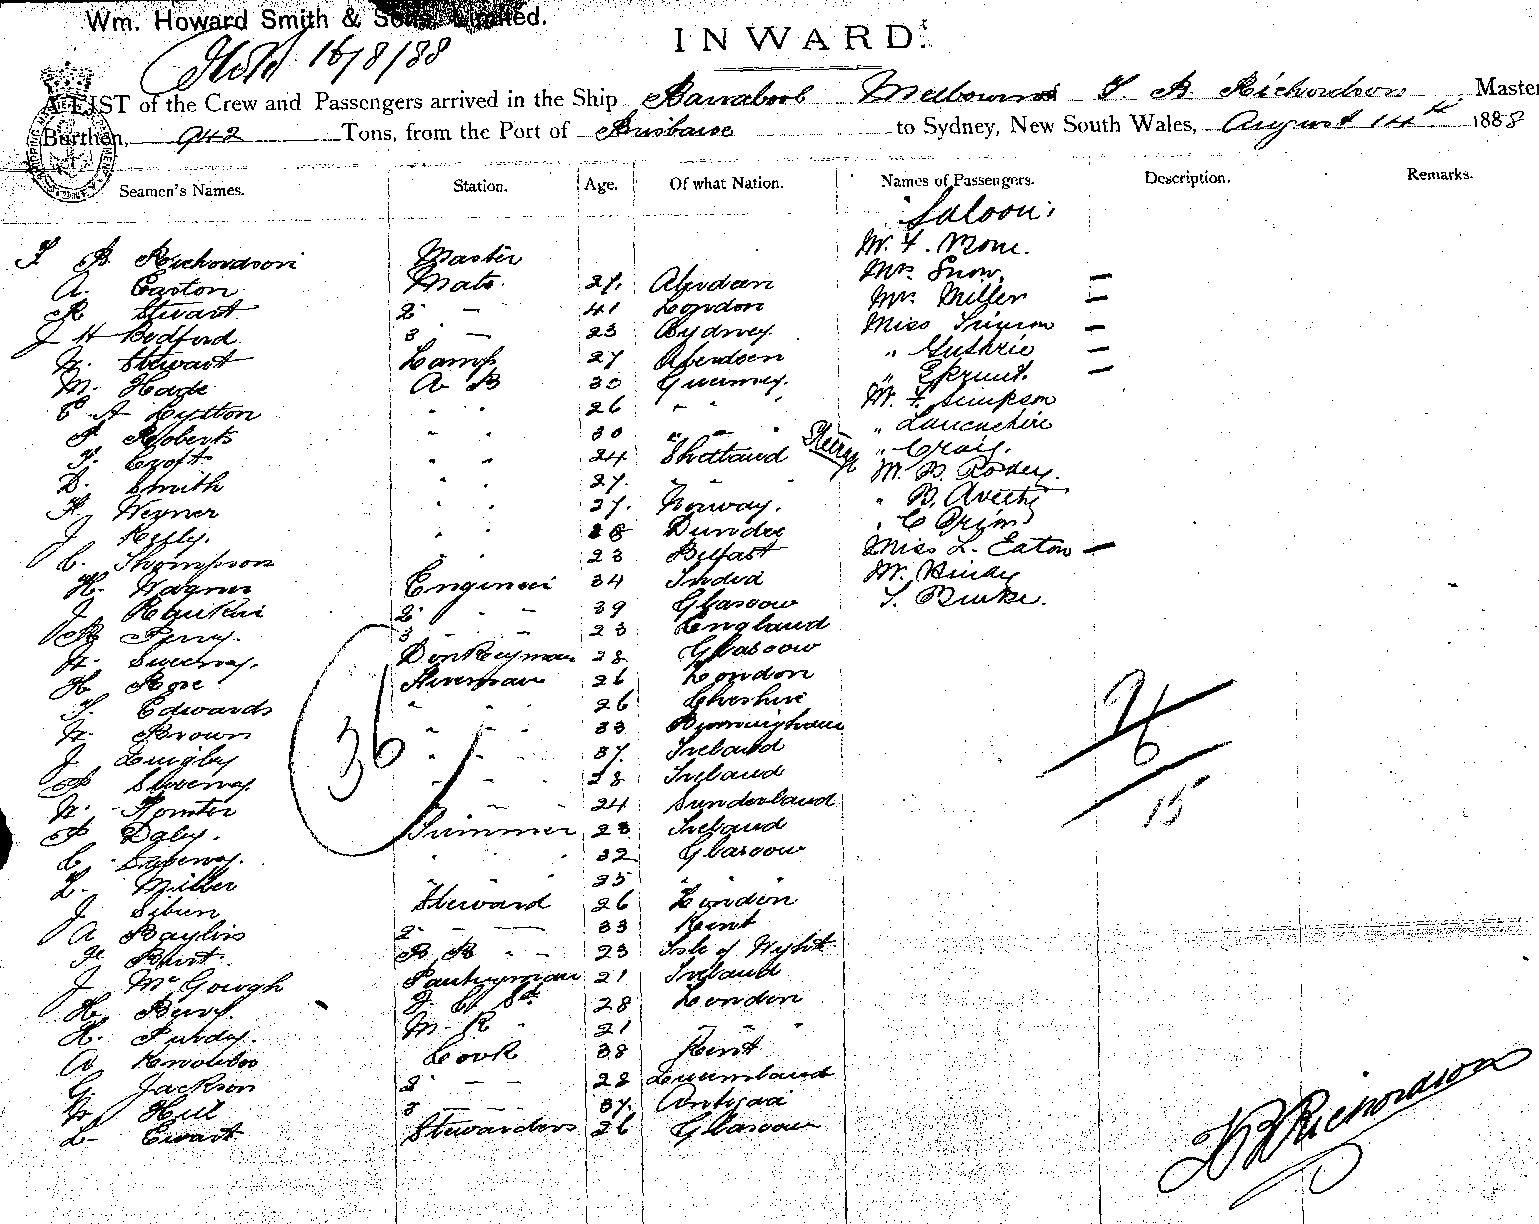 Wm. Howard Smith & Sons, Limited.
16/8/88
INWARD.
A LIST of the Crew and Passengers arrived in the Ship Barrabool Melbourne B Richardson Master
Burthen, 942 Tons, from the Port of Brisbane to Sydney, New South Wales, August 14th 1888
Seamen's Names. Station. Age. Of what Nation. Names of Passengers. Description. Remarks.
Saloon
B. Richardson Master Mr. F.
A. Easton Mate 27. Aberdeen Mrs Snow. —
R Stewart 2 — 41 London Mrs Miller —
J H Bedford 3 — 23 Sydney Miss —
W. Stewart Lamp 27 Aberdeen " Guthrie —
M. A B 30 Guernsey. " —
C A " " 26 " " Mr. F. Simpson
Roberts " " 30 " " " Lancashire
T. Croft " " 24 Shetland Steerage " Craig.
D. Smith " " 27. " Mr.
Wegner " " 27. Norway. " B.
J " " 28 Dundee " C
C. Thompson " " 23 Belfast Miss L. Eaton —
H. Wagner Engineer 34 India Mr. Hindy
J 2 " " 39 Glasgow T. Burke.
Perry. 3 " " 23 England
Sweeney. Donkeyman 28 Glasgow
H Rose Fireman 26 London
T. Edwards " " " 26 Cheshire
W. Brown " " " 33 Birmingham
J Quigby " " " 37. Ireland
P Sweeney " " " 28 Ireland
W. " " " 24 Sunderland
P Daly. Trimmer 23 Ireland
C. Sweeney. " " " 32 Glasgow
L. Miller " " " 25 " "
J Sibun Steward 26 London
A Bayliss 2 — — 33 Kent
Burt. B R " " 23 Isle of Wight
J McGough Pantryman 21 Ireland
H. Berry. 28 London
H. Purdy. M. R " 21 " " "
A Cook 38 Kent
G Jackson 2 — — 22 Queensland
W. 3 — — 37. Antigua
L Ewart Stewardess 26 Glasgow
36
26
15
Richardson